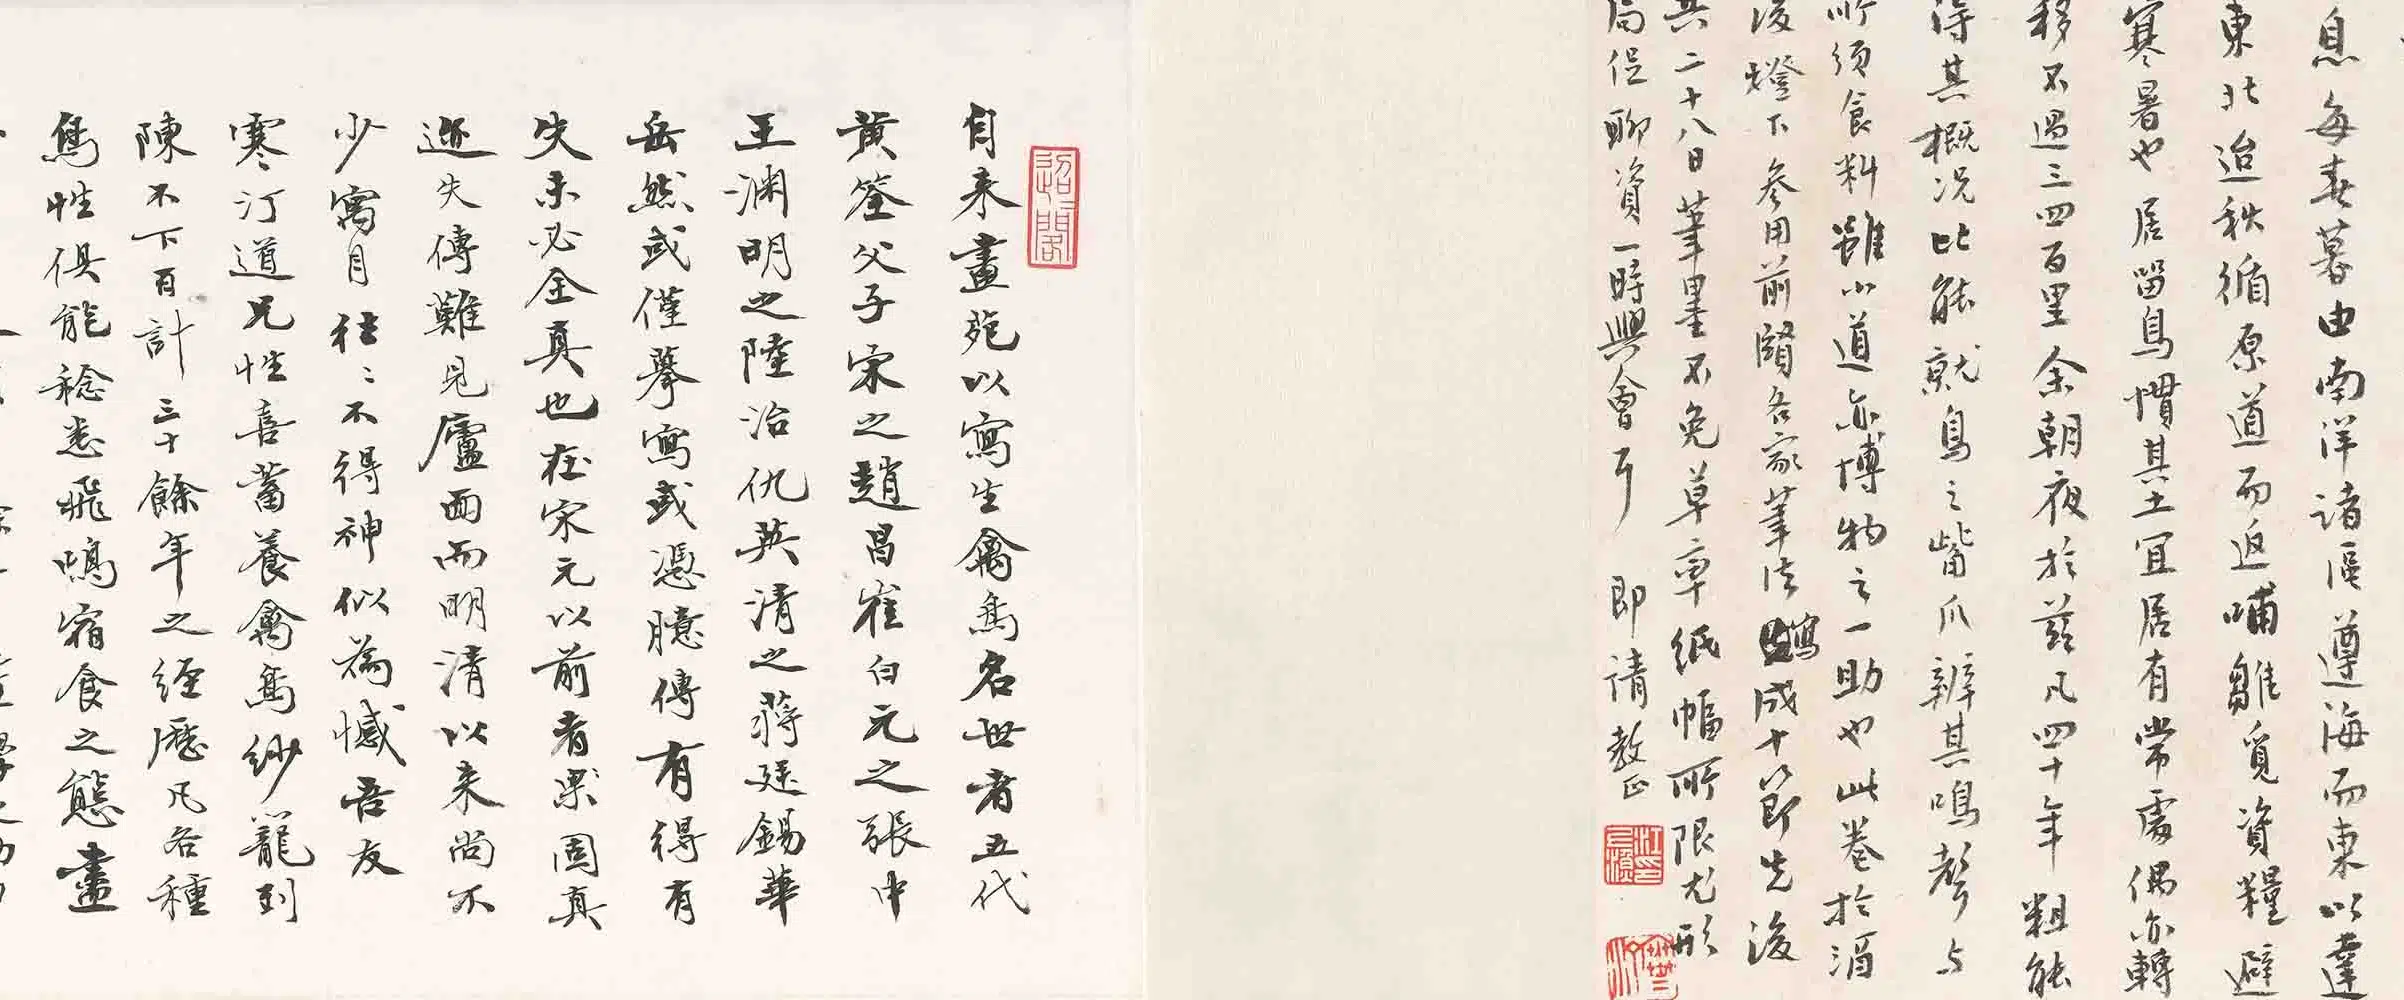 息每春暮由南洋諸區遵海而東以達
東北迨秋循原道而返哺雛覓資糧避
寒暑也居留鳥慣其土宜居有常處偶亦轉
移不過三四百里余朝夜於茲凡四十年粗能
得其概況比能就鳥之觜爪辨其鳴聲与
所須食料雖小道亦博物之一助也此卷於酒
後燈下參用前賢各家筆法寫成十節先後
共二十八日筆墨不免草率紙幅所限尤形
局促聊資一時興會耳 即請教正
迢閣
自来畫苑以寫生禽鳥名世者五代
黃筌父子宋之趙昌崔白元之張中
王淵明之陸治仇英清之蔣廷錫華
嵒然或僅摹寫或憑臆傳有得有
失未必全真也在宋元以前者果固真
迹失傳難見廬面而明清以来尚不
少寫月往往不得神似為憾吾友
寒汀道兄性喜蓄養禽鳥紗籠到
陳不下百計三十餘年之經歷凡各種
鳥性俱能稔悉飛鳴宿食之態畫